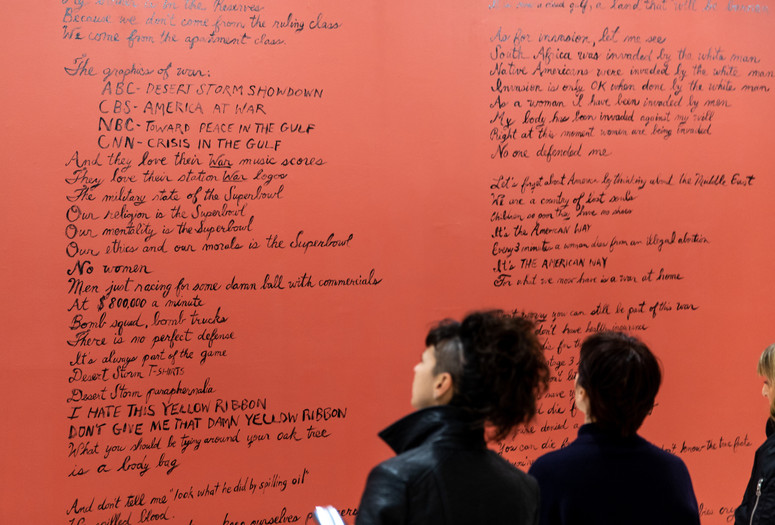 for the Reserves
Because we don't come from the ruling class
We come from the apartment class
The graphics of war:
ABC- DESERT STORM SHOWDOWN
CBS- AMERICA AT WAR
NBC- TOWARD PEACE IN THE GULF
CNN- CRISIS IN THE GULF
And they love their War music scores
They love their station War logos
The military state of the Superbowl
Our religion is the Superbowl
Our mentality is the Superbowl
Our ethics and our morals is the Superbowl
No women
Men just racing for some damn ball with commercials
At $800,000 a minute
Bomb squad, bomb trucks
There is no perfect defense
It's always part of the game
Desert Storm T-SHIRTS
Desert Storm paraphernalia
I HATE THIS YELLOW RIBBON
DON'T GIVE ME THAT DAMN YELLOW RIBBON
What you should be tying around your oak tree
is a body bag
And don't tell me "look what he did by spilling oil"
spilled blood.
keep ourselves
a land that will be
As for invasion, let me see
South Africa was invaded by the white man
Native Americans were invaded by the white man
Invasion is only OK when done by the white man
As a woman I have been invaded by men
My body has been invaded against my will
Right at this moment women are being invaded
No one defended me
Let's forget about America by thinking about the Middle East
We are a country of lost souls
Children so poor they have no shoes
It's the AMERICAN WAY
Every 3 minutes a woman dies from an illegal abortion
It's THE AMERICAN WAY
For what we now have is a war at home
you can still be part of this war
don't have health insurance
die for
stage 3
don't
die
denied
You can die
know-the two facts